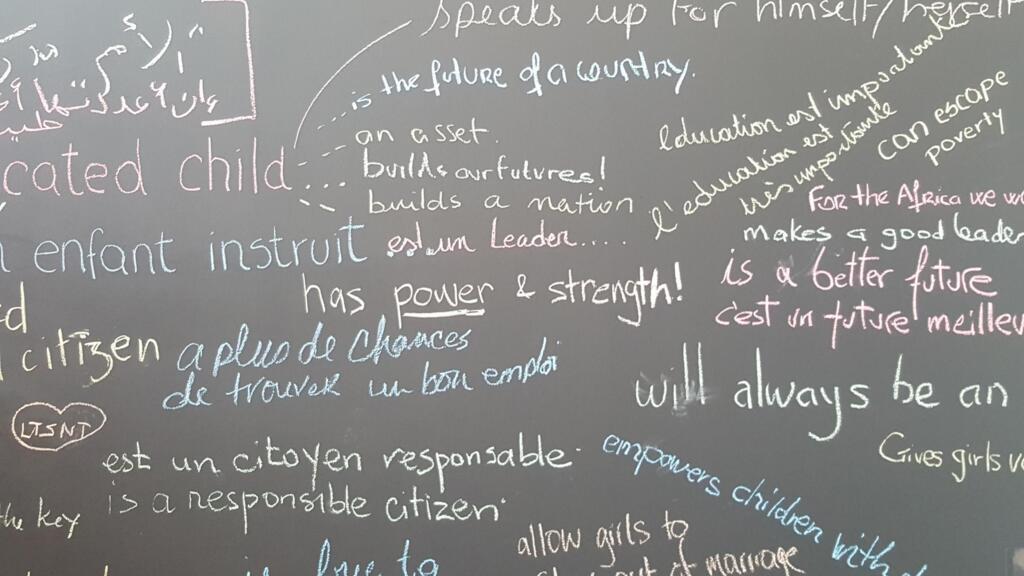 speaks up for himself/herself
is the future of a country.
an asset.
builds our futures!
builds a nation
cated child
l'education est importante
l'education est
importante
can escape
poverty
For the Africa we
makes a good leader
enfant instruit
est un Leader.....
has power & strength!
is a better future
c'est un future meilleu
citizen
a plus de chances
de trouver un bon emploi
will always be an
LTSNT
est un citoyen responsable.
is a responsible citizen.
the key
Gives girls
empowers children with
allow girls to
out of marriage